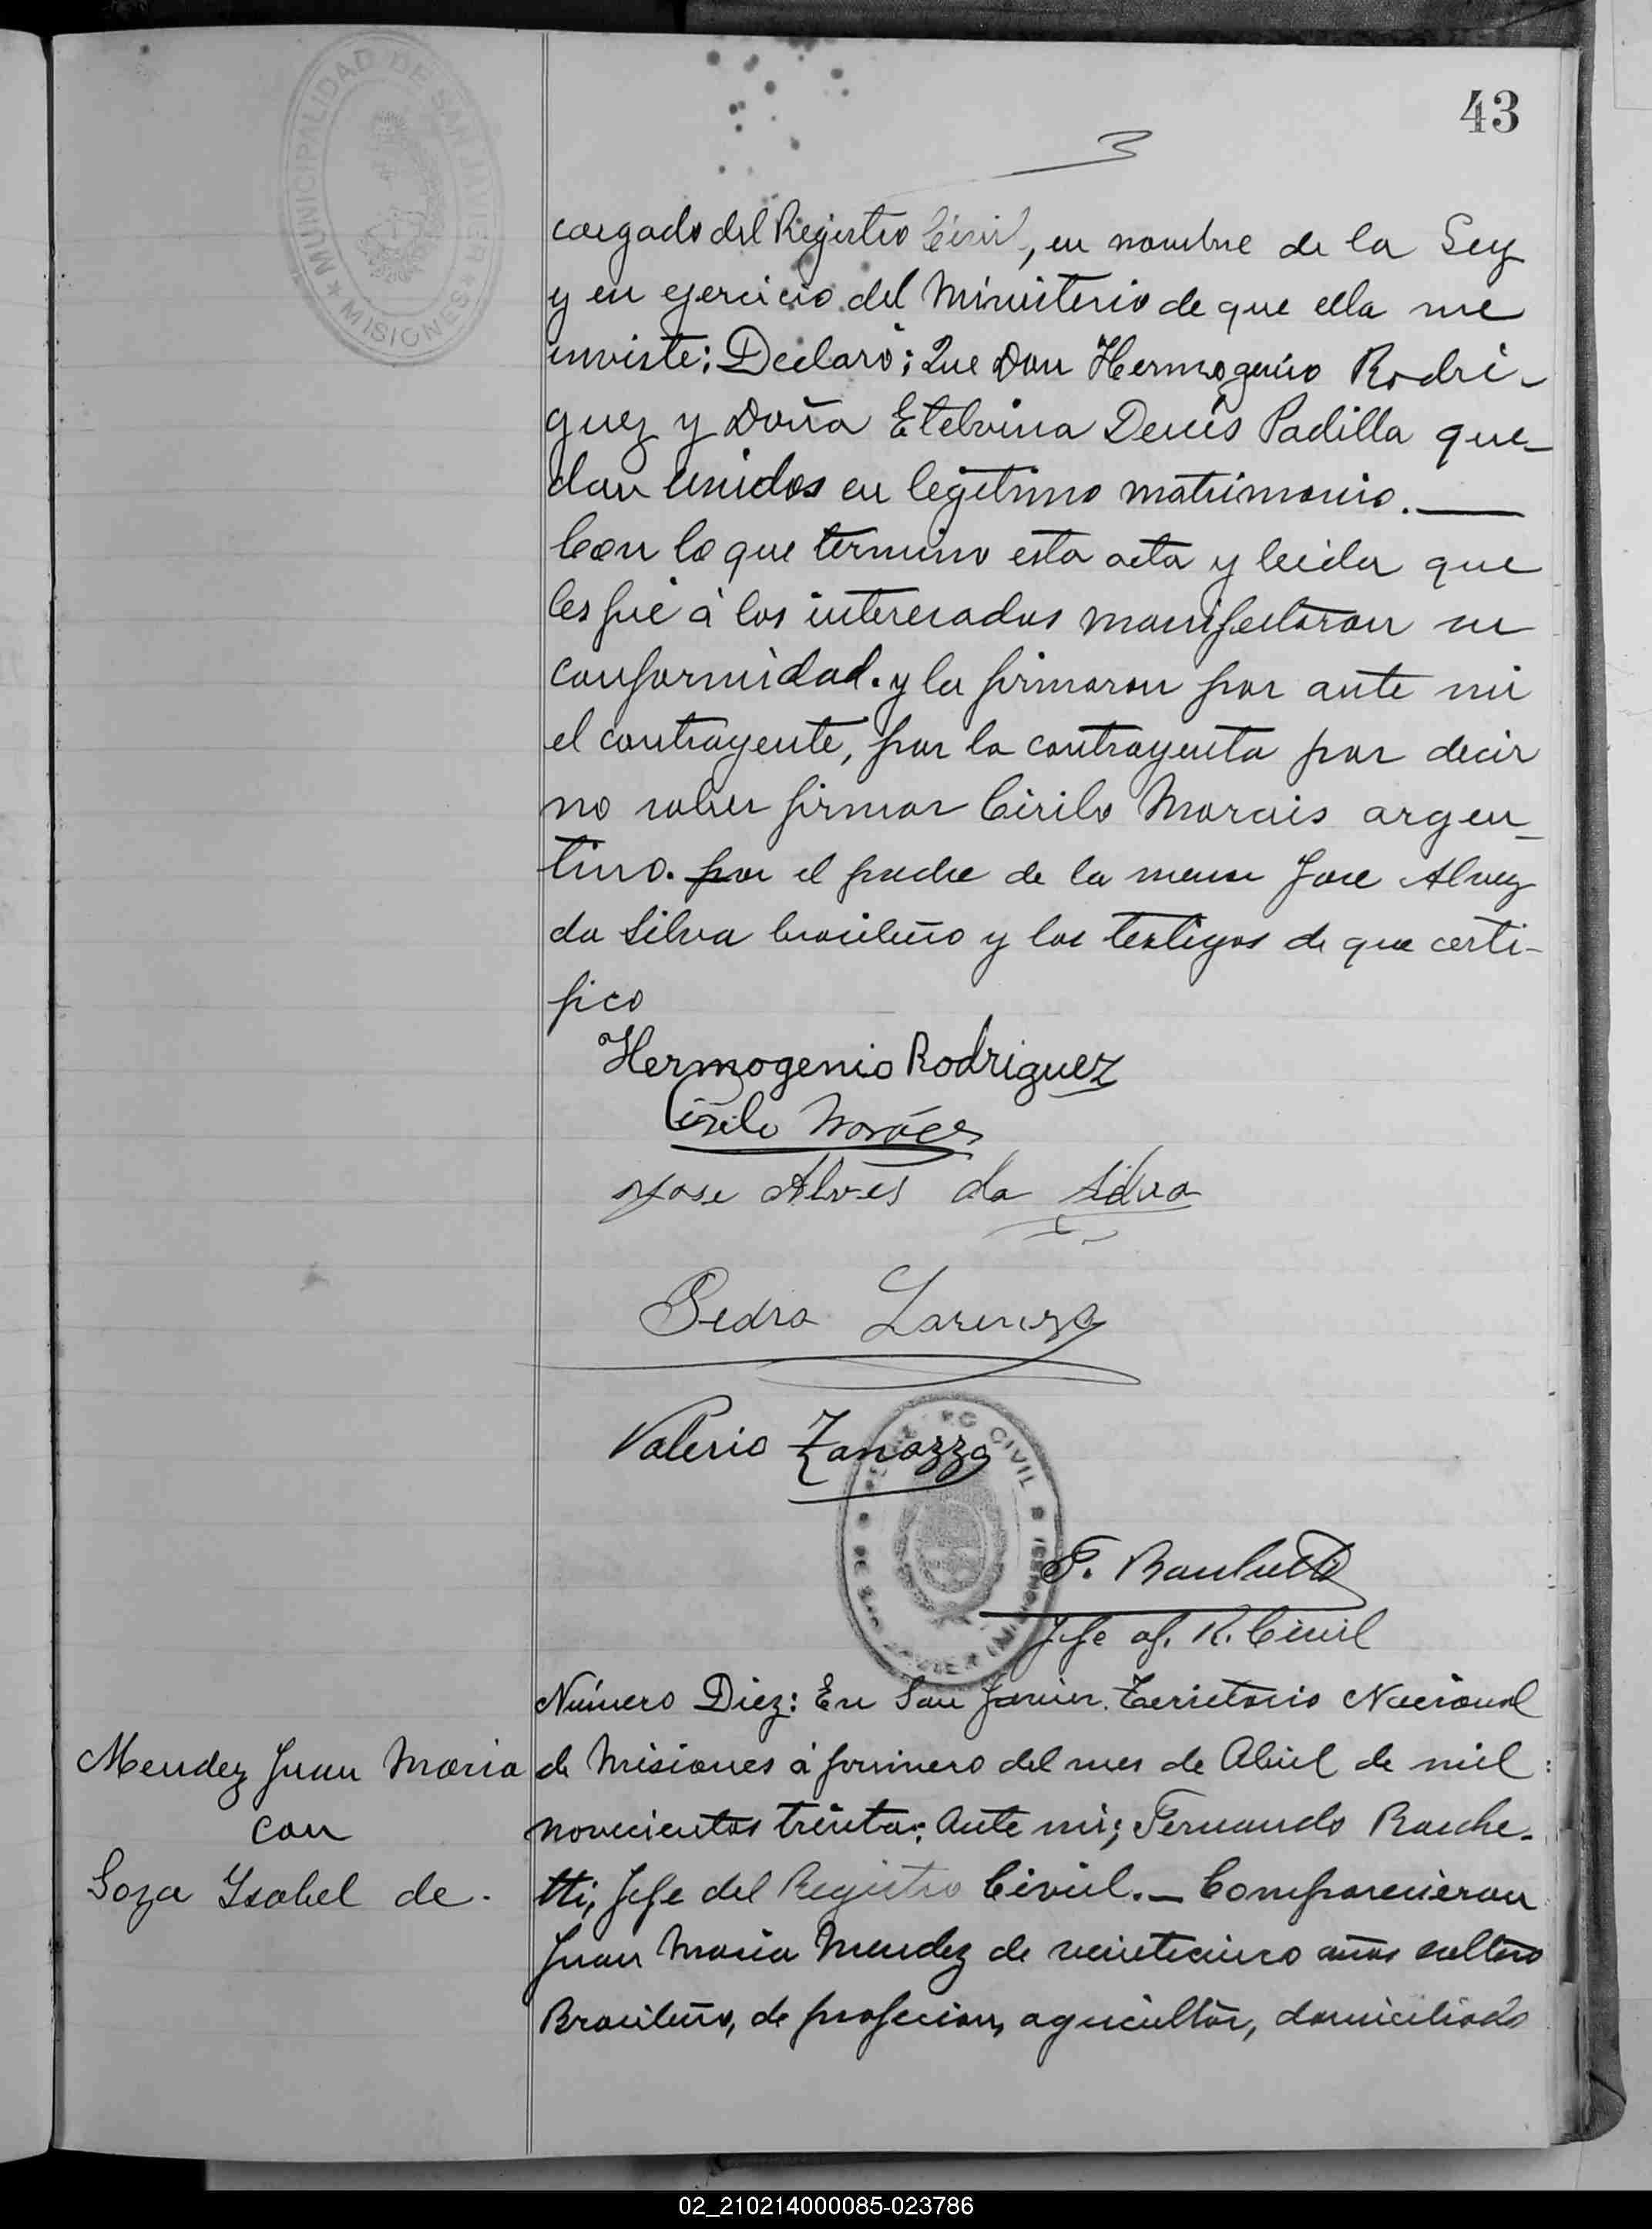 43
MUNICIPALIDAD DE SAN JAVIER
* MISIONES *
3
cargado del Registro Civil, en nombre de la Ley
y en ejercicio del Ministerio de que ella me
inviste; Declaro; Que Don Hermogenio Rodri-
guez y Doña Etelvina Denis Padilla que-
dan unidos en legitimo matrimonio.
Con lo que termino esta acta y leida que
les fué á los interesados manifestaron su
conformidad. y la firmaron por ante mi
el contrayente, por la contrayenta por decir
no saber firmar Cirilo Morais argen-
tino. por el padre de la menor Jose Alvez
da Silva brasileño y los testigos de que certi-
fico
Hermogenio Rodriguez
Cirilo Moráes
Jose Alves da Silva
Pedro Lorenzo
Valerio Zanazzo
CIVIL
F. Bachetti
Jefe of. R. Civil
Número Diez: En San Javier. Territorio Nacional
Mendez Juan Maria
de Misiones á primero del mes de Abril de mil
con
novecientos treinta; Ante mi; Fernando Bache-
Soza Ysabel de.
tti, Jefe del Registro Civil. — Comparecieron
Juan Maria Mendez de veinticinco años soltero
Brasileño, de profecion, agricultor, domiciliado
02_210214000085-023786